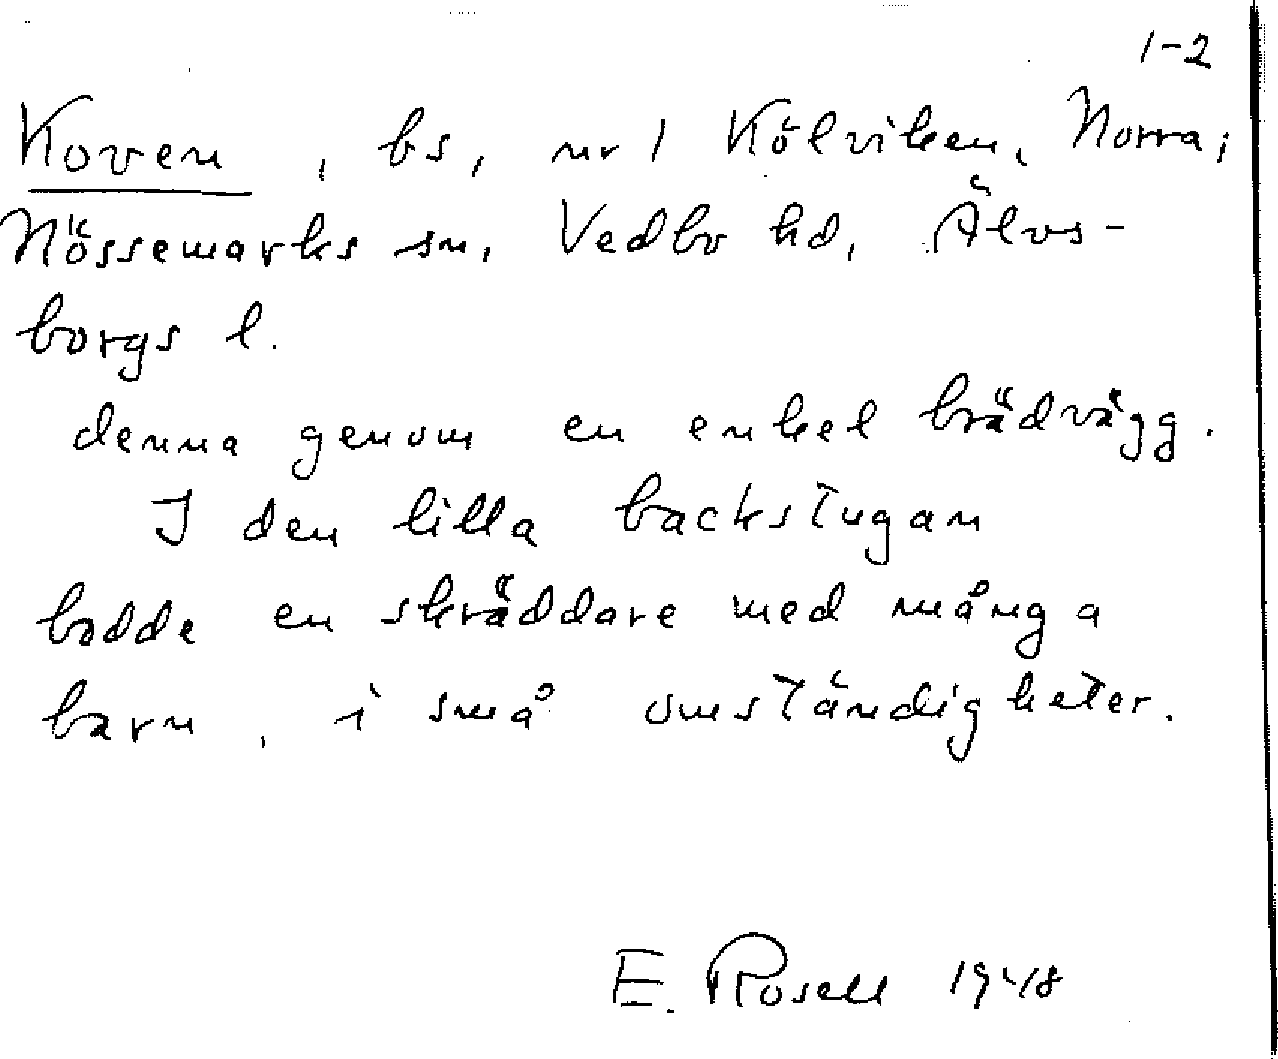 1-2
Koven, bs, nr 1 Kölviken, Norra;
Nössemarks sn, Vedbo hd, Älvs-
borgs l.
denna genom en enkel brädvägg.
I den lilla backstugan
bodde en skräddare med många
barn, i små omständigheter.
E. Rosell 1948